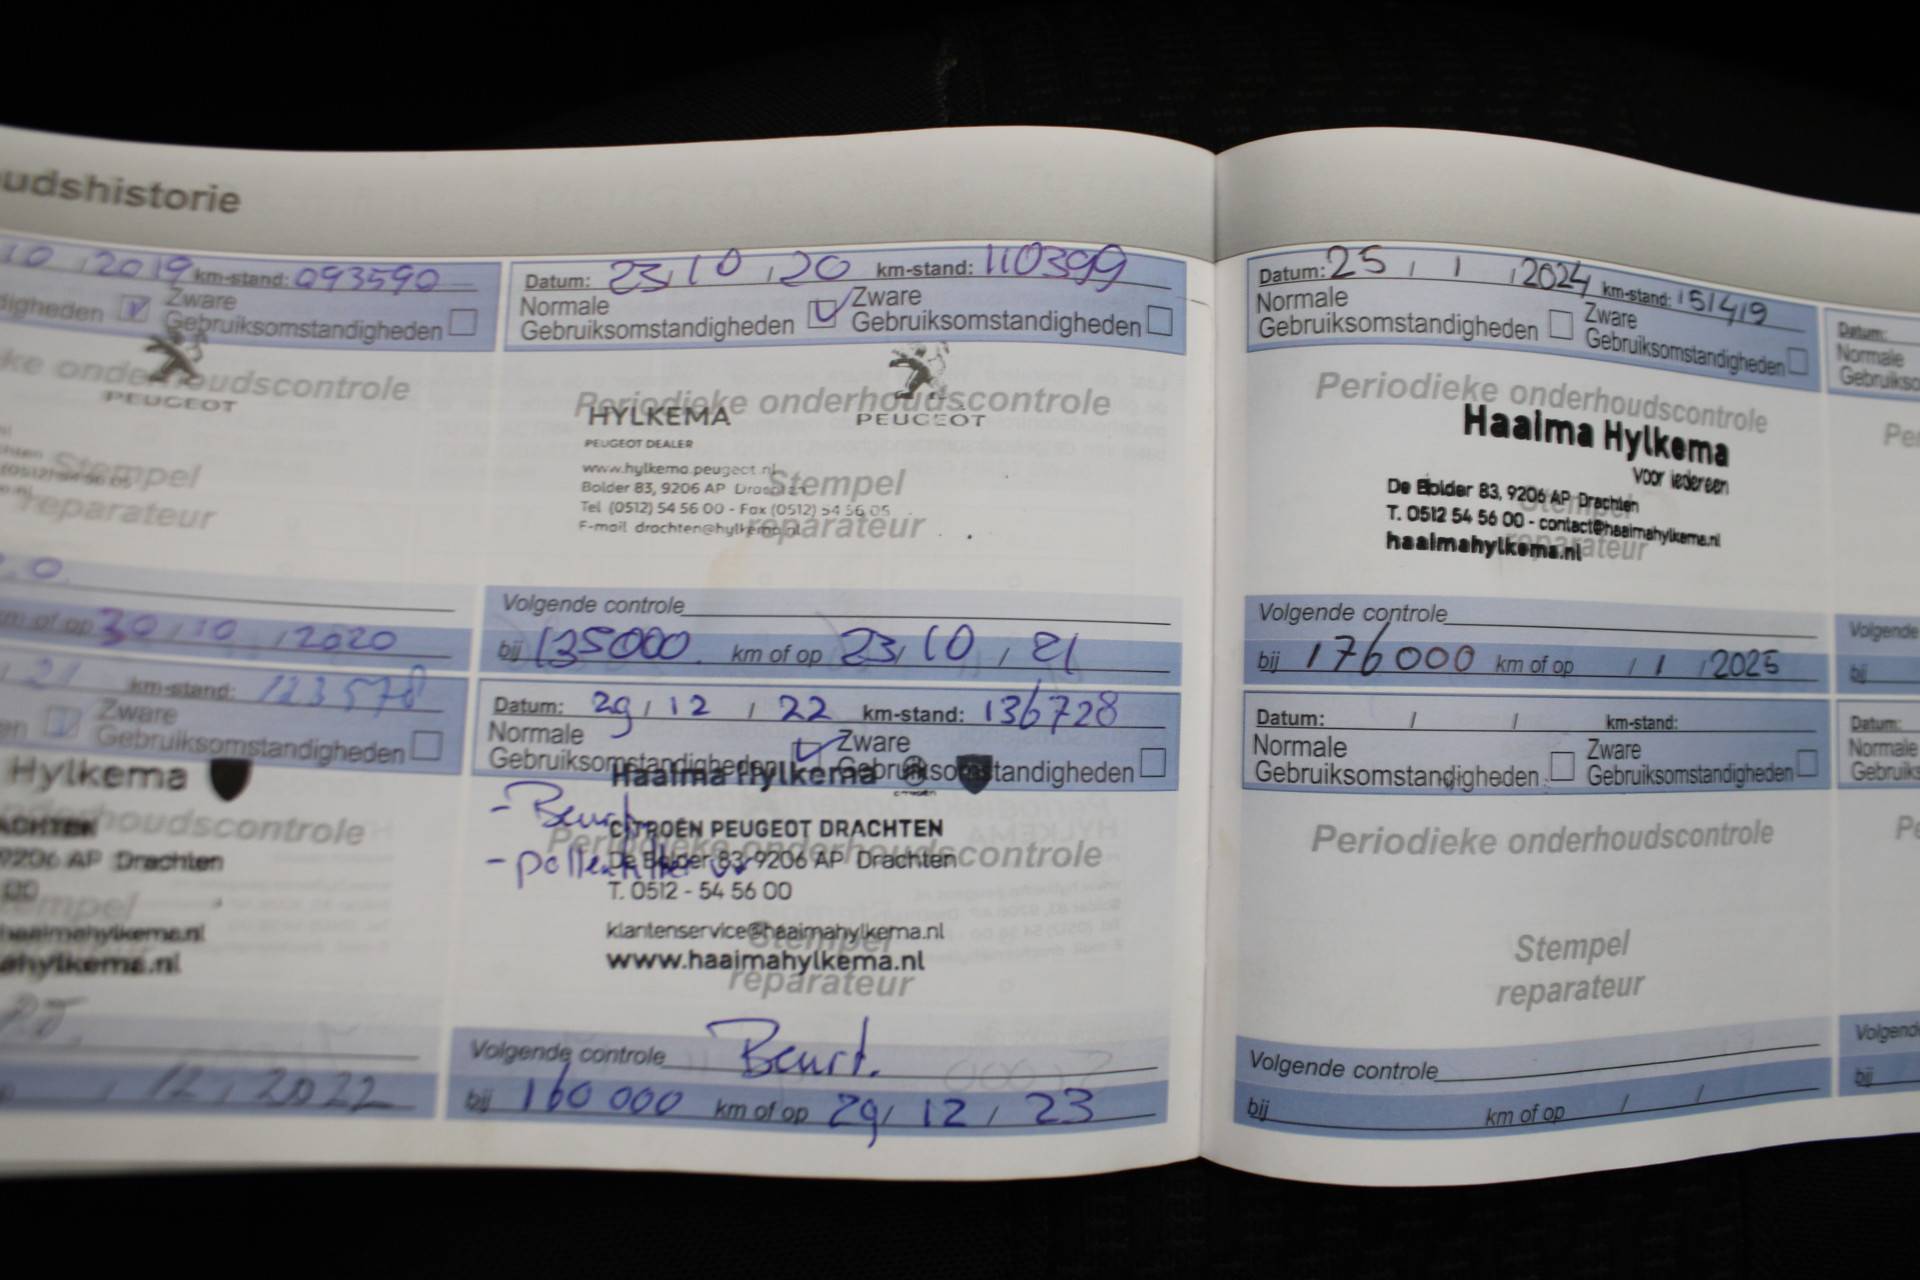 udshistorie
10 / 2019 km-stand: 093590
digheden Zware
Gebruiksomstandigheden
ke onderhoudscontrole
PEUGEOT
Stempel
reparateur
km of op 30 / 10 / 2020
21 km-stand: 123578
Zware
Gebruiksomstandigheden
Hylkema
houdscontrole
9206 AP Drachten
haaimahylkema.nl
ahylkema.nl
12 / 2022
Datum: 23 / 10 / 20 km-stand: 110399
Normale
Gebruiksomstandigheden
Zware
Gebruiksomstandigheden
Periodieke onderhoudscontrole
HYLKEMA
PEUGEOT
PEUGEOT DEALER
www.hylkema.peugeot.nl
Stempel
Bolder 83, 9206 AP Drachten
Tel (0512) 54 56 00 - Fax (0512) 54 56 05
E-mail drachten@hylkema.nl
reparateur
Volgende controle
bij 135000 km of op 23 / 10 / 21
Datum: 29 / 12 / 22 km-stand: 136728
Normale
Gebruiksomstandigheden
Zware
Gebruiksomstandigheden
Haaima Hylkema
CITROËN
- Beurt
CITROËN PEUGEOT DRACHTEN
Periodieke onderhoudscontrole
- pollenfilter
De Bolder 83 9206 AP Drachten
T. 0512 - 54 56 00
klantenservice@haaimahylkema.nl
Stempel
www.haaimahylkema.nl
reparateur
Volgende controle Beurt.
bij 160 000 km of op 29 / 12 / 23
Datum: 25 / 1 / 2024 km-stand: 151419
Normale
Gebruiksomstandigheden
Zware
Gebruiksomstandigheden
Periodieke onderhoudscontrole
Haaima Hylkema
Voor iedereen
De Bolder 83, 9206 AP Drachten
Stempel
T. 0512 54 56 00 - contact@haaimahylkema.nl
haaimahylkema.nl
reparateur
Volgende controle
bij 176000 km of op / 1 / 2025
Datum: / / km-stand:
Normale
Gebruiksomstandigheden
Zware
Gebruiksomstandigheden
Periodieke onderhoudscontrole
Stempel
reparateur
Volgende controle
bij km of op / /
Datum:
Normale
Gebruikso
Pe
Volgende
bij
Datum:
Normale
Gebruiks
Pe
Volgend
bij